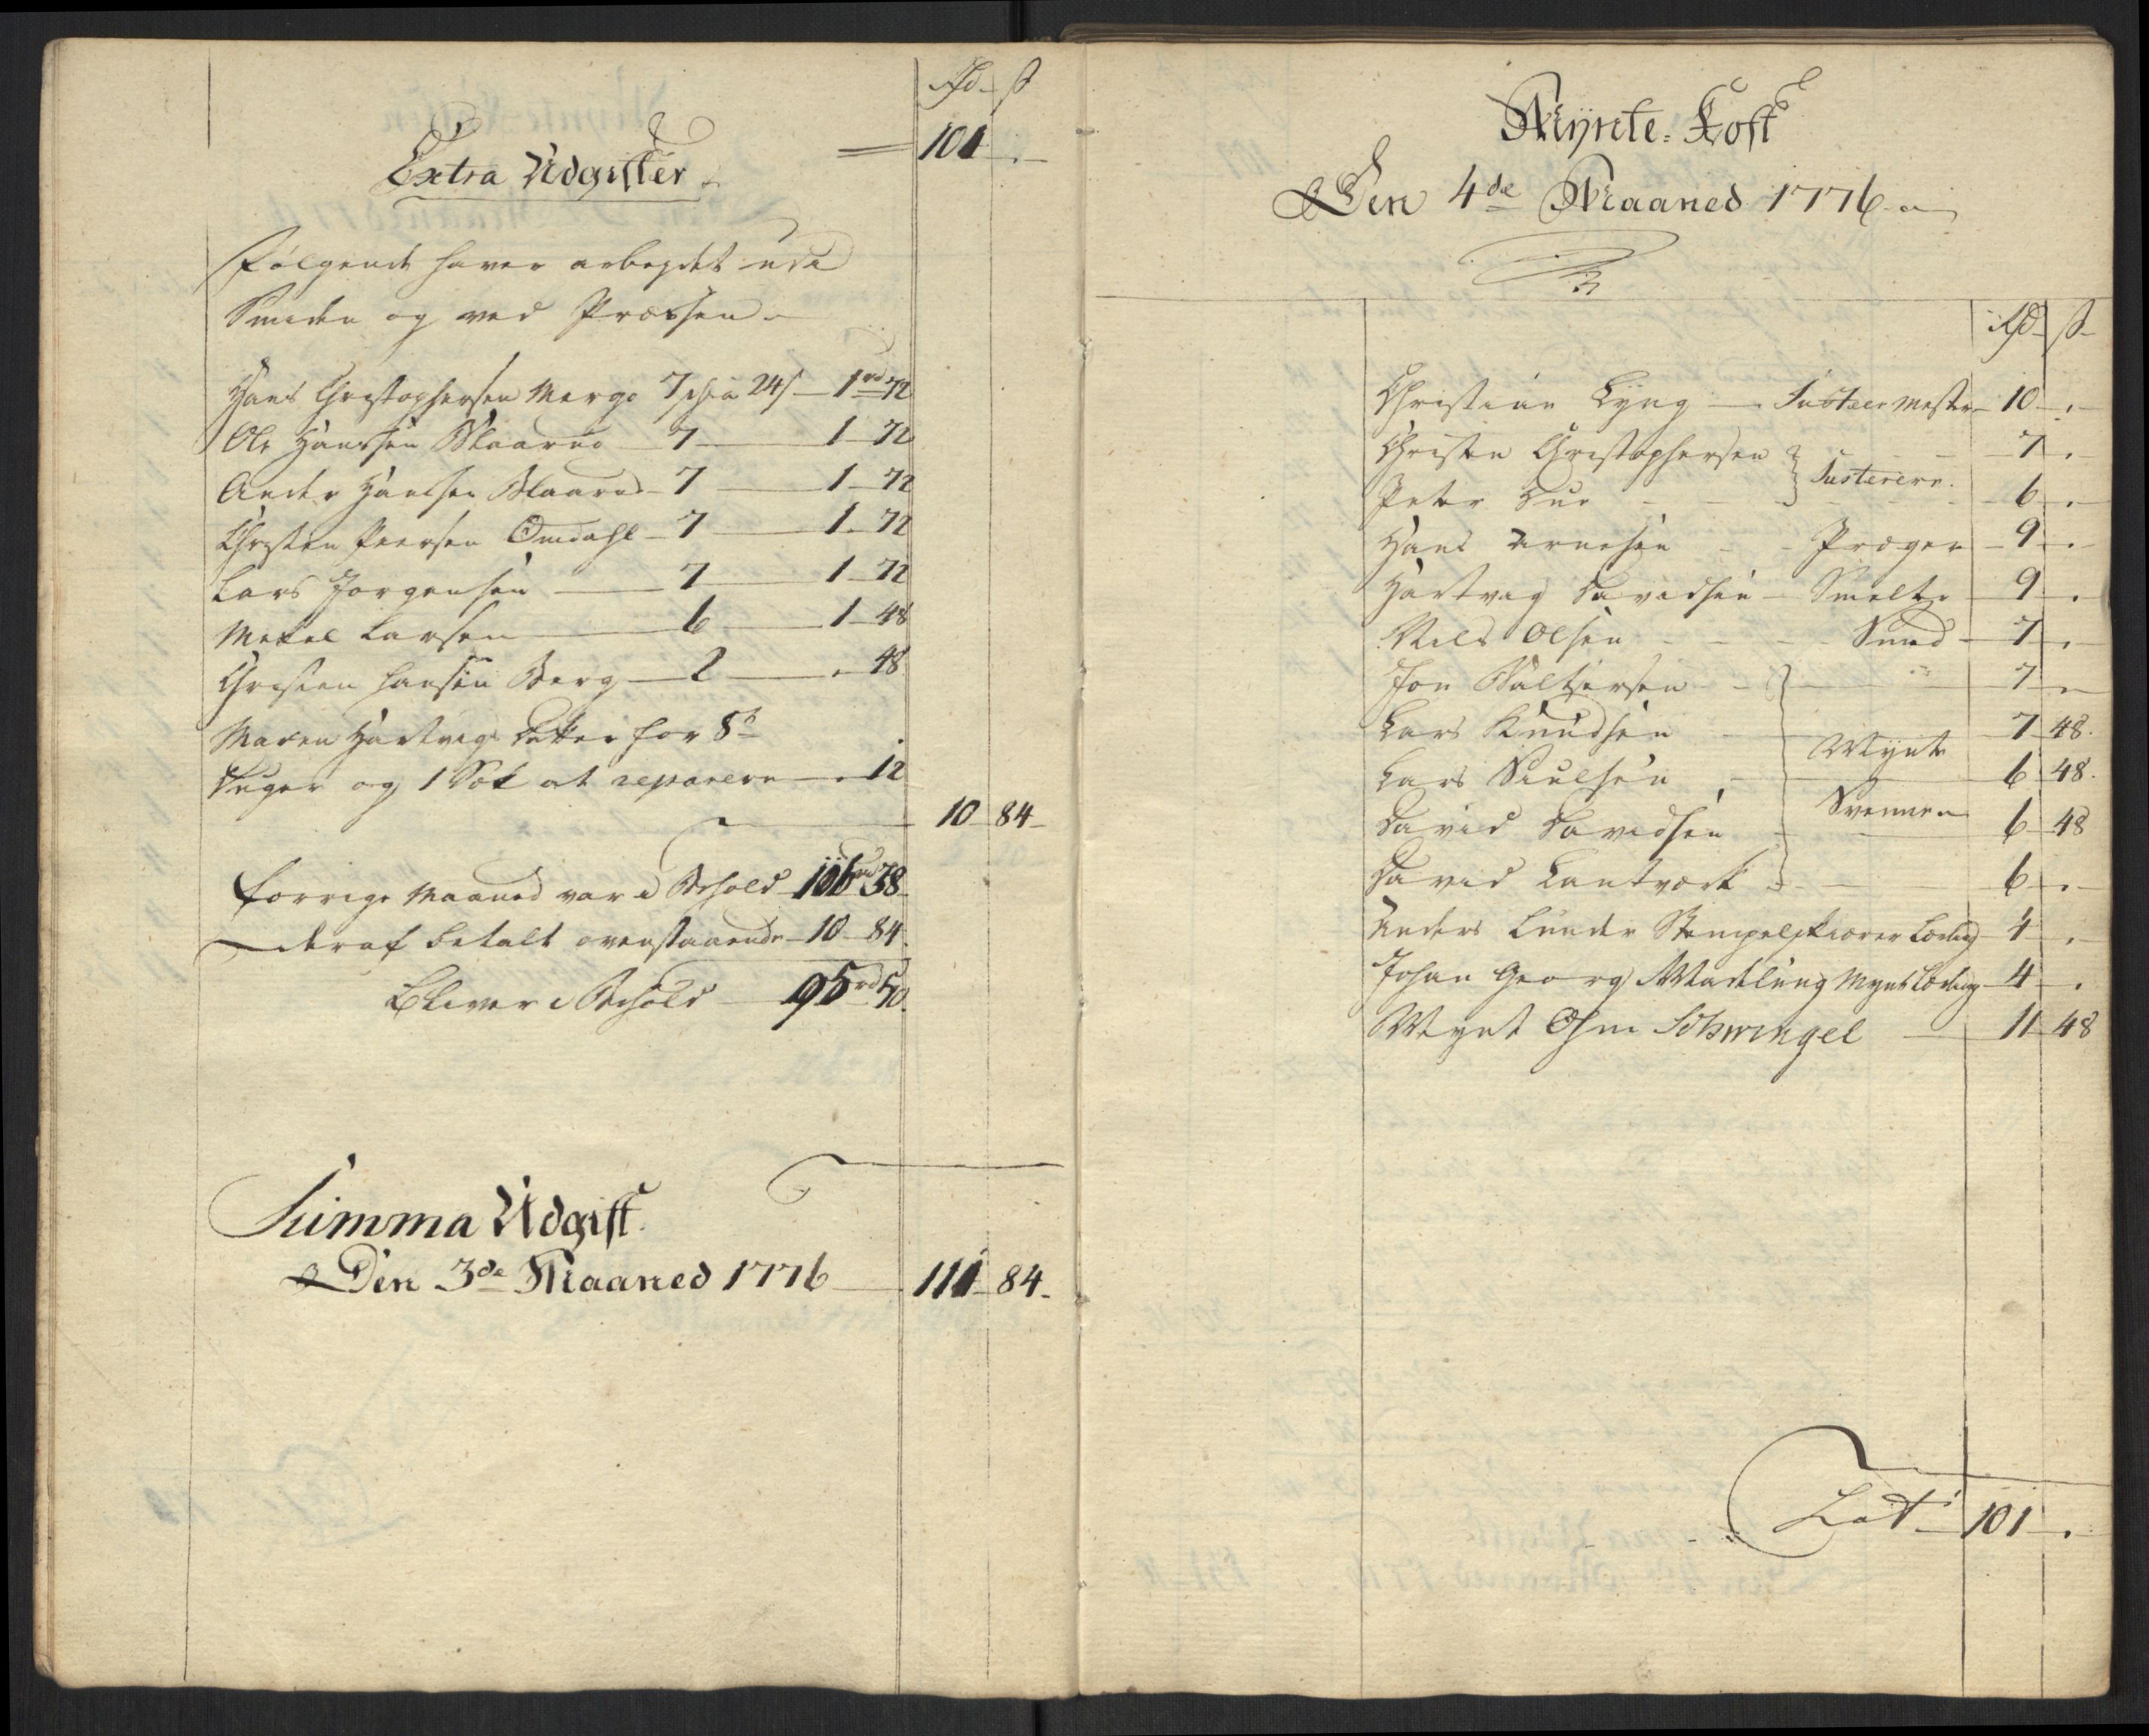 Rd ß
101 .
Extra Udgifter
Følgende haver arbeydet udi
Smiden og ved Pressen
Hans Christophersen Morgo 7 sch: a 24ß 1rd 72
Ole Hanssen Blaarud 7 1 72
Ander Hansen Blaarud 7 1 72
Christen Peersen Omdahl 7 1 72
Lars Jorgensen 7 1 72
Mekel Larsen 6 1 48
Christen Hansen Berg 2 . 48
Maren Hartvigs Datter for 8t
og 1 Sæk at reparere . 12
10 84
forrige Maaned var i Behold 106rd 38
deraf betalt ovenstaaende 10 84
bliver i Behold 95rd 50
Summa Udgift
Den 3de Maaned 1776 111 84
Mynte-Kost
Den 4de Maaned 1776
Rd ß
Christian Lyng Justeer Mester 10 .
Christen Christophersen 7 .
Justerere.
Peter Due 6 .
Hans Arnesen Præger 9 .
Hartvig Davidsen Smelter 9 .
Nils Olsen Smed 7 .
Jon Baltzersen 7
Lars Knudsen 7 48
Mynt
Lars Siulsen 6 48
Svennene
David Davidsen 6 48
David Lantværk 6 .
Anders Lunde Stempelskiærer Lærling 4 .
Johan Georg Madelung Mynt Lærling 4 .
Mynt Ohm Schwingel 11 48
Lat 101 .